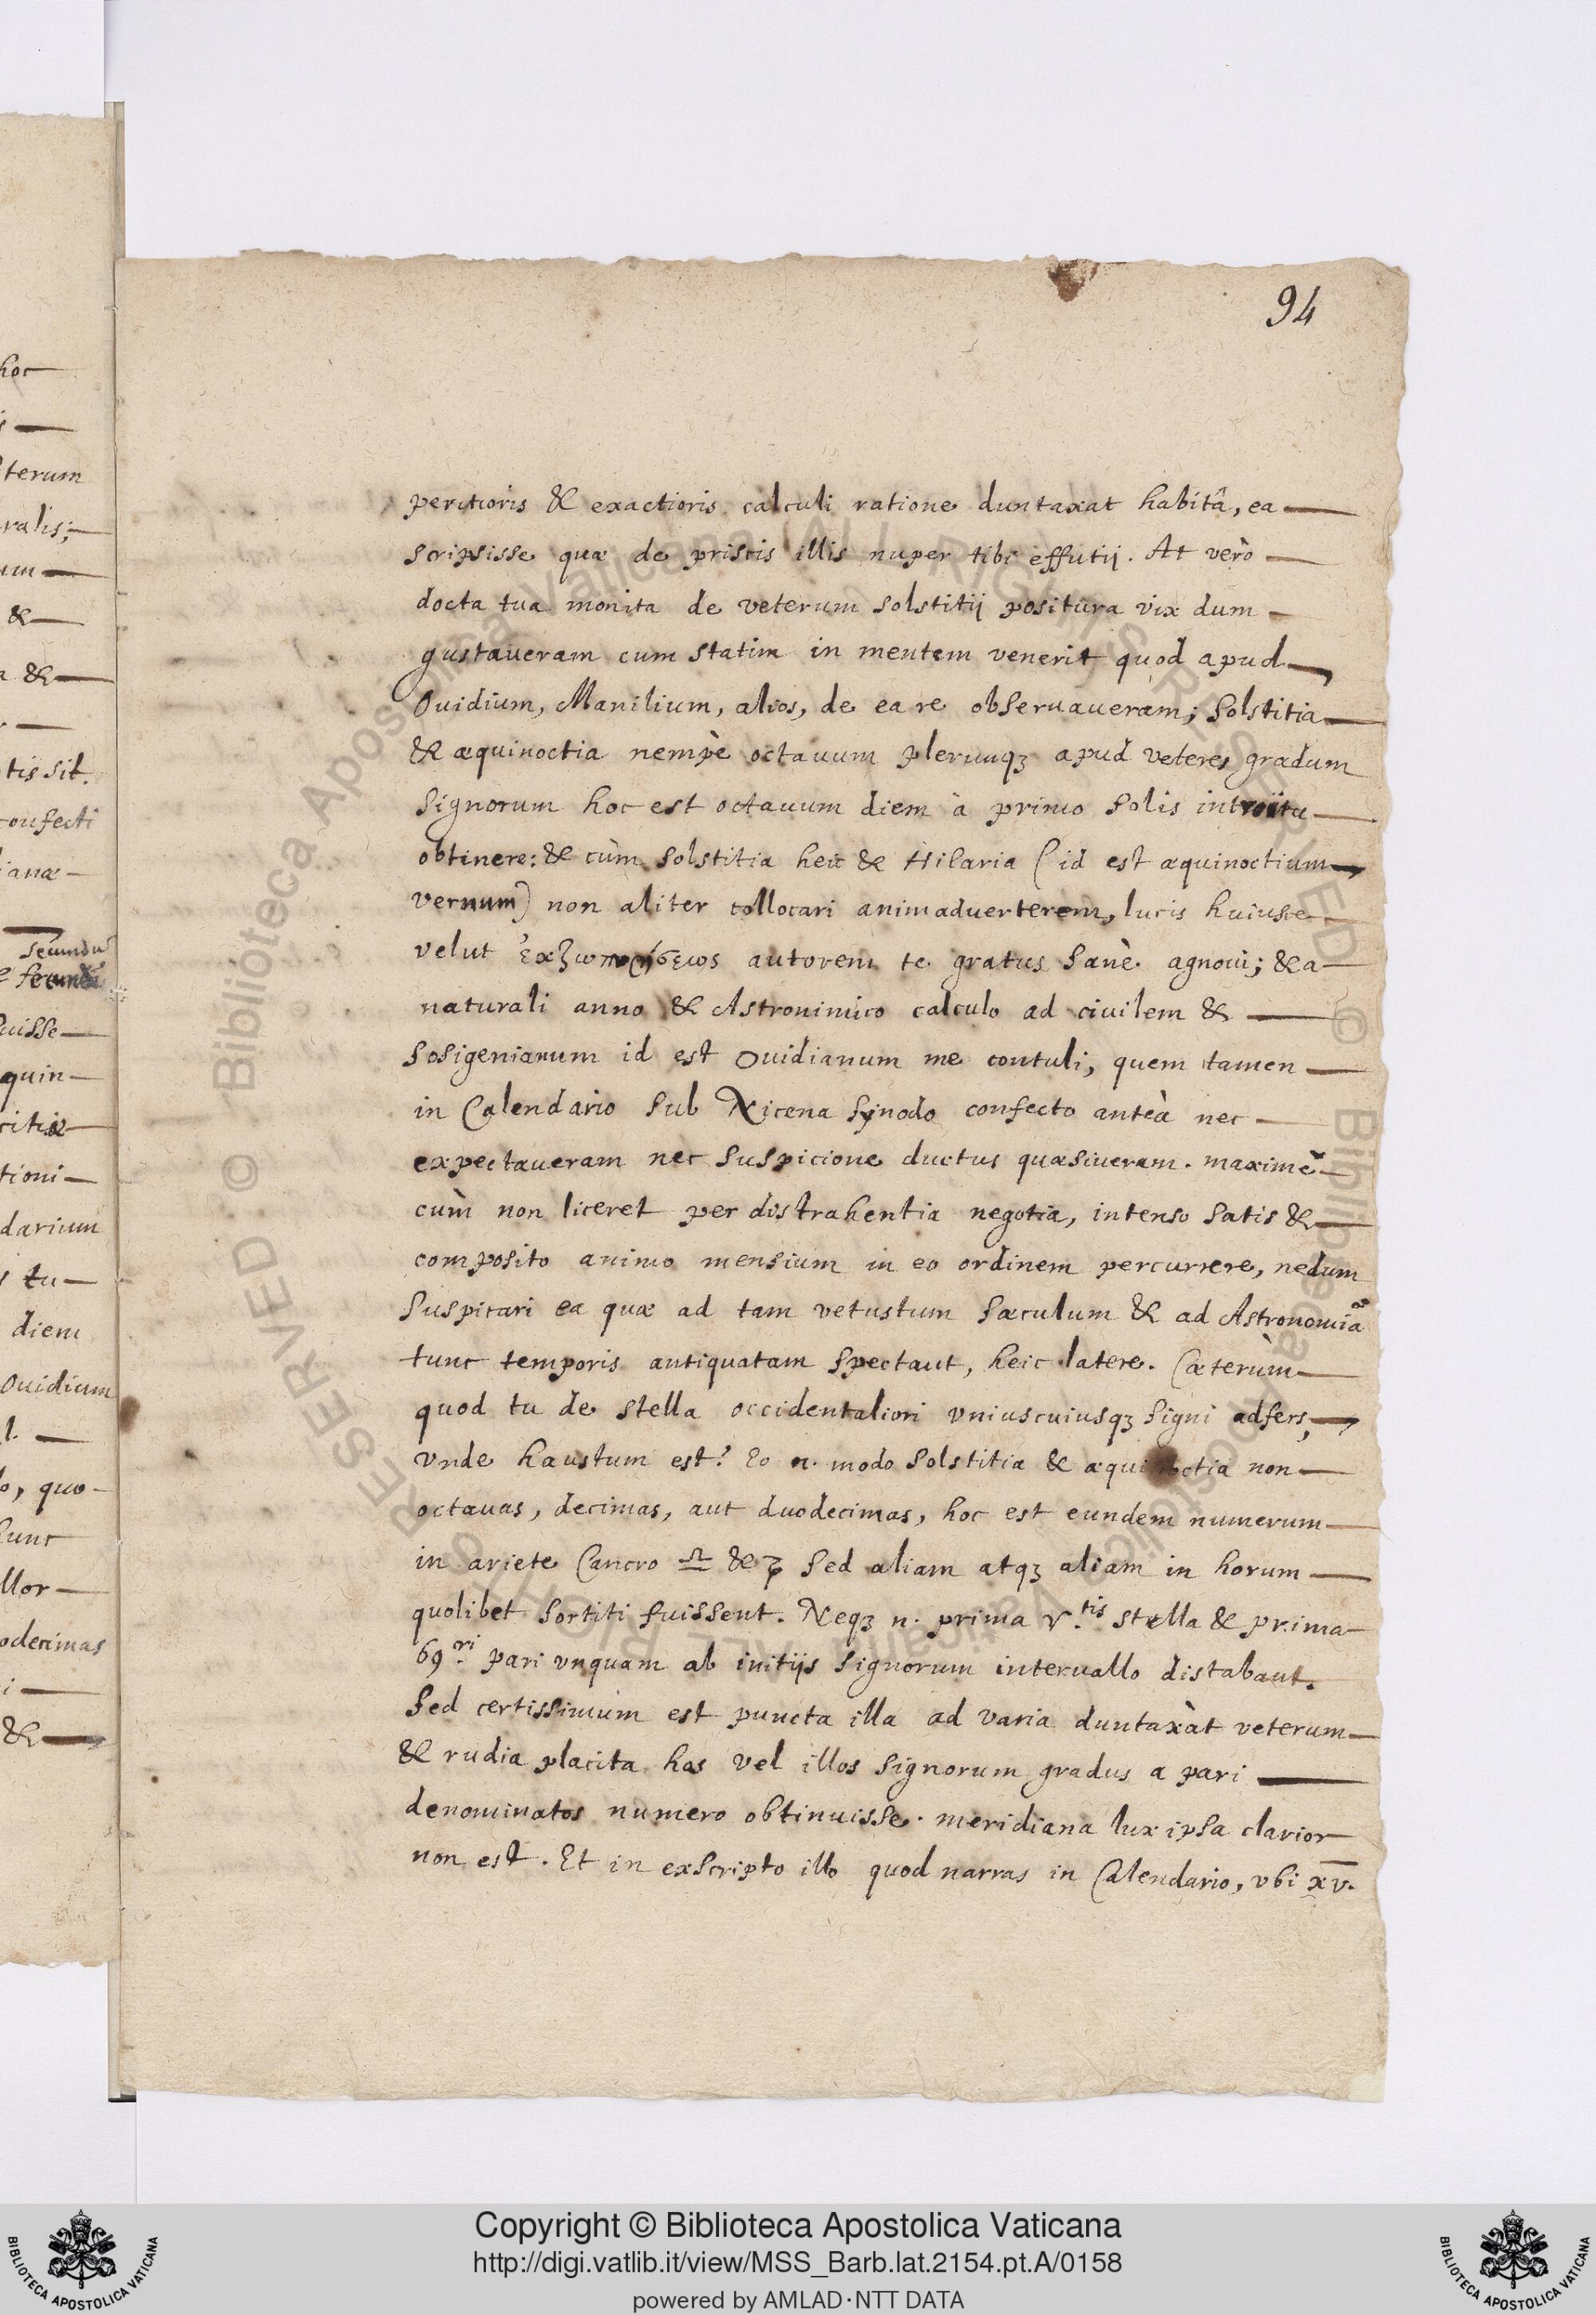 94
peritioris & exactioris calculi ratione duntaxat habitâ, ea
scripsisse quæ de priscis illis nuper tibi effutij. At verò
docta tua monita de veterum solstitij positura vix dum
gustaueram cum statim in mentem venerit quod apud
Ouidium, Manilium, alios, de ea re obseruaueram; Solstitia
& æquinoctia nempè octauum plerumqꝫ apud veteres gradum
signorum hoc est octauum diem à primo Solis introitu
obtinere: & cùm solstitia heic & Hilaria (id est æquinoctium
vernum) non aliter collocari animaduerterem, lucis huiusce
velut autorem te gratus sanè agnoui; & a
naturali anno & Astronimico calculo ad ciuilem &
Sosigenianum id est Ouidianum me contuli, quem tamen
in Calendario sub Nicena Synodo confecto anteà nec
expectaueram nec suspicione ductus quæsiueram. maximè
cùm non liceret per distrahentia negotia, intenso satis &
composito animo mensium in eo ordinem percurrere, nedum
suspicari ea quæ ad tam vetustum sæculum & ad Astronomiã
tunc temporis antiquatam spectant, heic latere. Cæterùm
quod tu de stella occidentaliori vniuscuiusqꝫ signi adfers,
vnde haustum est? Eo n. modo solstitia & æquinoctia non
octauas, decimas, aut duodecimas, hoc est eundem numerum
in ariete Cancro ♎ & ♑ sed aliam atqꝫ aliam in horum
quolibet sortiti fuissent. Neqꝫ n. prima ♈.tis stella & prima
69.ri pari vnquam ab initijs signorum interuallo distabant.
Sed certissimum est puncta illa ad varia duntaxàt veterum
& rudia placita hos vel illos signorum gradus a pari
denominatos numero obtinuisse. meridiana lux ipsa clarior
non est. Et in exscripto illo quod narras in Calendario, vbi xv.
hoc
terum
ralis;
um
&
&
tis sit.
confecti
ianæ
secundus
uisse
quin
citiæ
tioni
darium
tu
diem
Ouidium
l.
o, quo
hunc
llor
odecimas
i
&
© Biblioteca Apostolica Vaticana ALL RIGHTS RESERVED © Biblioteca Apostolica Vaticana ALL RIGHTS RESERVED
Copyright © Biblioteca Apostolica Vaticana
http://digi.vatlib.it/view/MSS_Barb.lat.2154.pt.A/0158
powered by AMLAD·NTT DATA
BIBLIOTECA APOSTOLICA VATICANA
BIBLIOTECA APOSTOLICA VATICANA